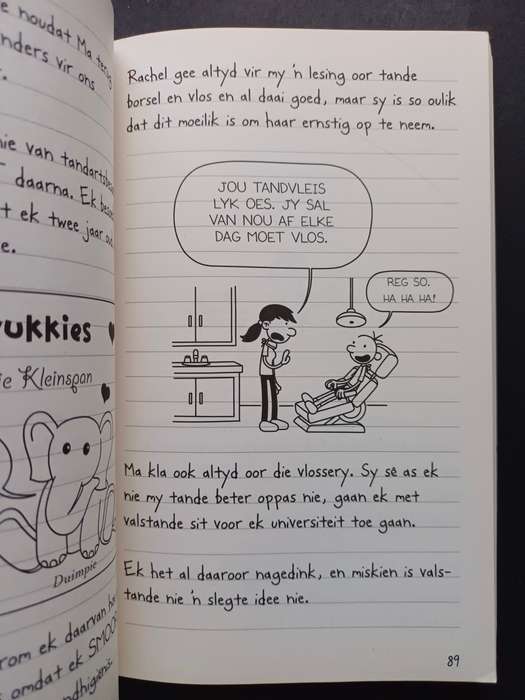 e noudat Ma terug
nders vir ons
r.
nie van tandarts
daarna. Ek
t ek twee jaar
e.
ukkies
ie Kleinspan
Duimpie
rom ek daarvan
omdat ek
Rachel gee altyd vir my 'n lesing oor tande
borsel en vlos en al daai goed, maar sy is so oulik
dat dit moeilik is om haar ernstig op te neem.
JOU TANDVLEIS
LYK OES. JY SAL
VAN NOU AF ELKE
DAG MOET VLOS.
REG SO.
HA HA HA!
Ma kla ook altyd oor die vlossery. Sy sê as ek
nie my tande beter oppas nie, gaan ek met
valstande sit voor ek universiteit toe gaan.
Ek het al daaroor nagedink, en miskien is vals-
tande nie 'n slegte idee nie.
89